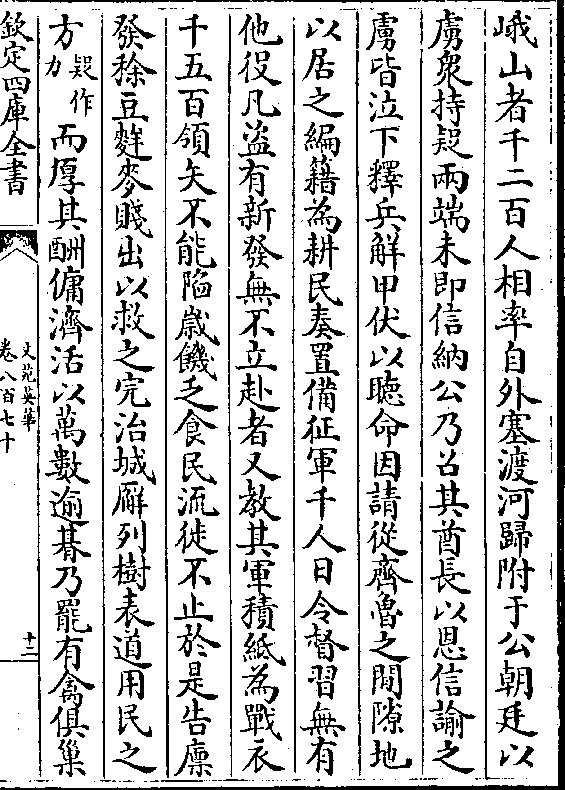 峨山者千二百人相率自外塞渡河歸附于公朝廷以
虜衆持疑兩端未即信納公乃召其酋長以恩信諭之
虜皆泣下釋兵解甲伏以聽命因請從齊魯之間隙地
以居之編籍為耕民奏置備征軍千人日令督習無有
他役凡盗有新發無不立赴者又教其軍積紙為戰衣
千五百領矢不能陷嵗饑乏食民流徙不止於是告廪
發稌豆麰麥賤出以救之完治城廨列樹表道用民之
方疑作力而厚其酬傭濟活以萬數逾朞乃罷有禽俱巢
欽定四庫全書
文苑英華
卷八百七十
十二